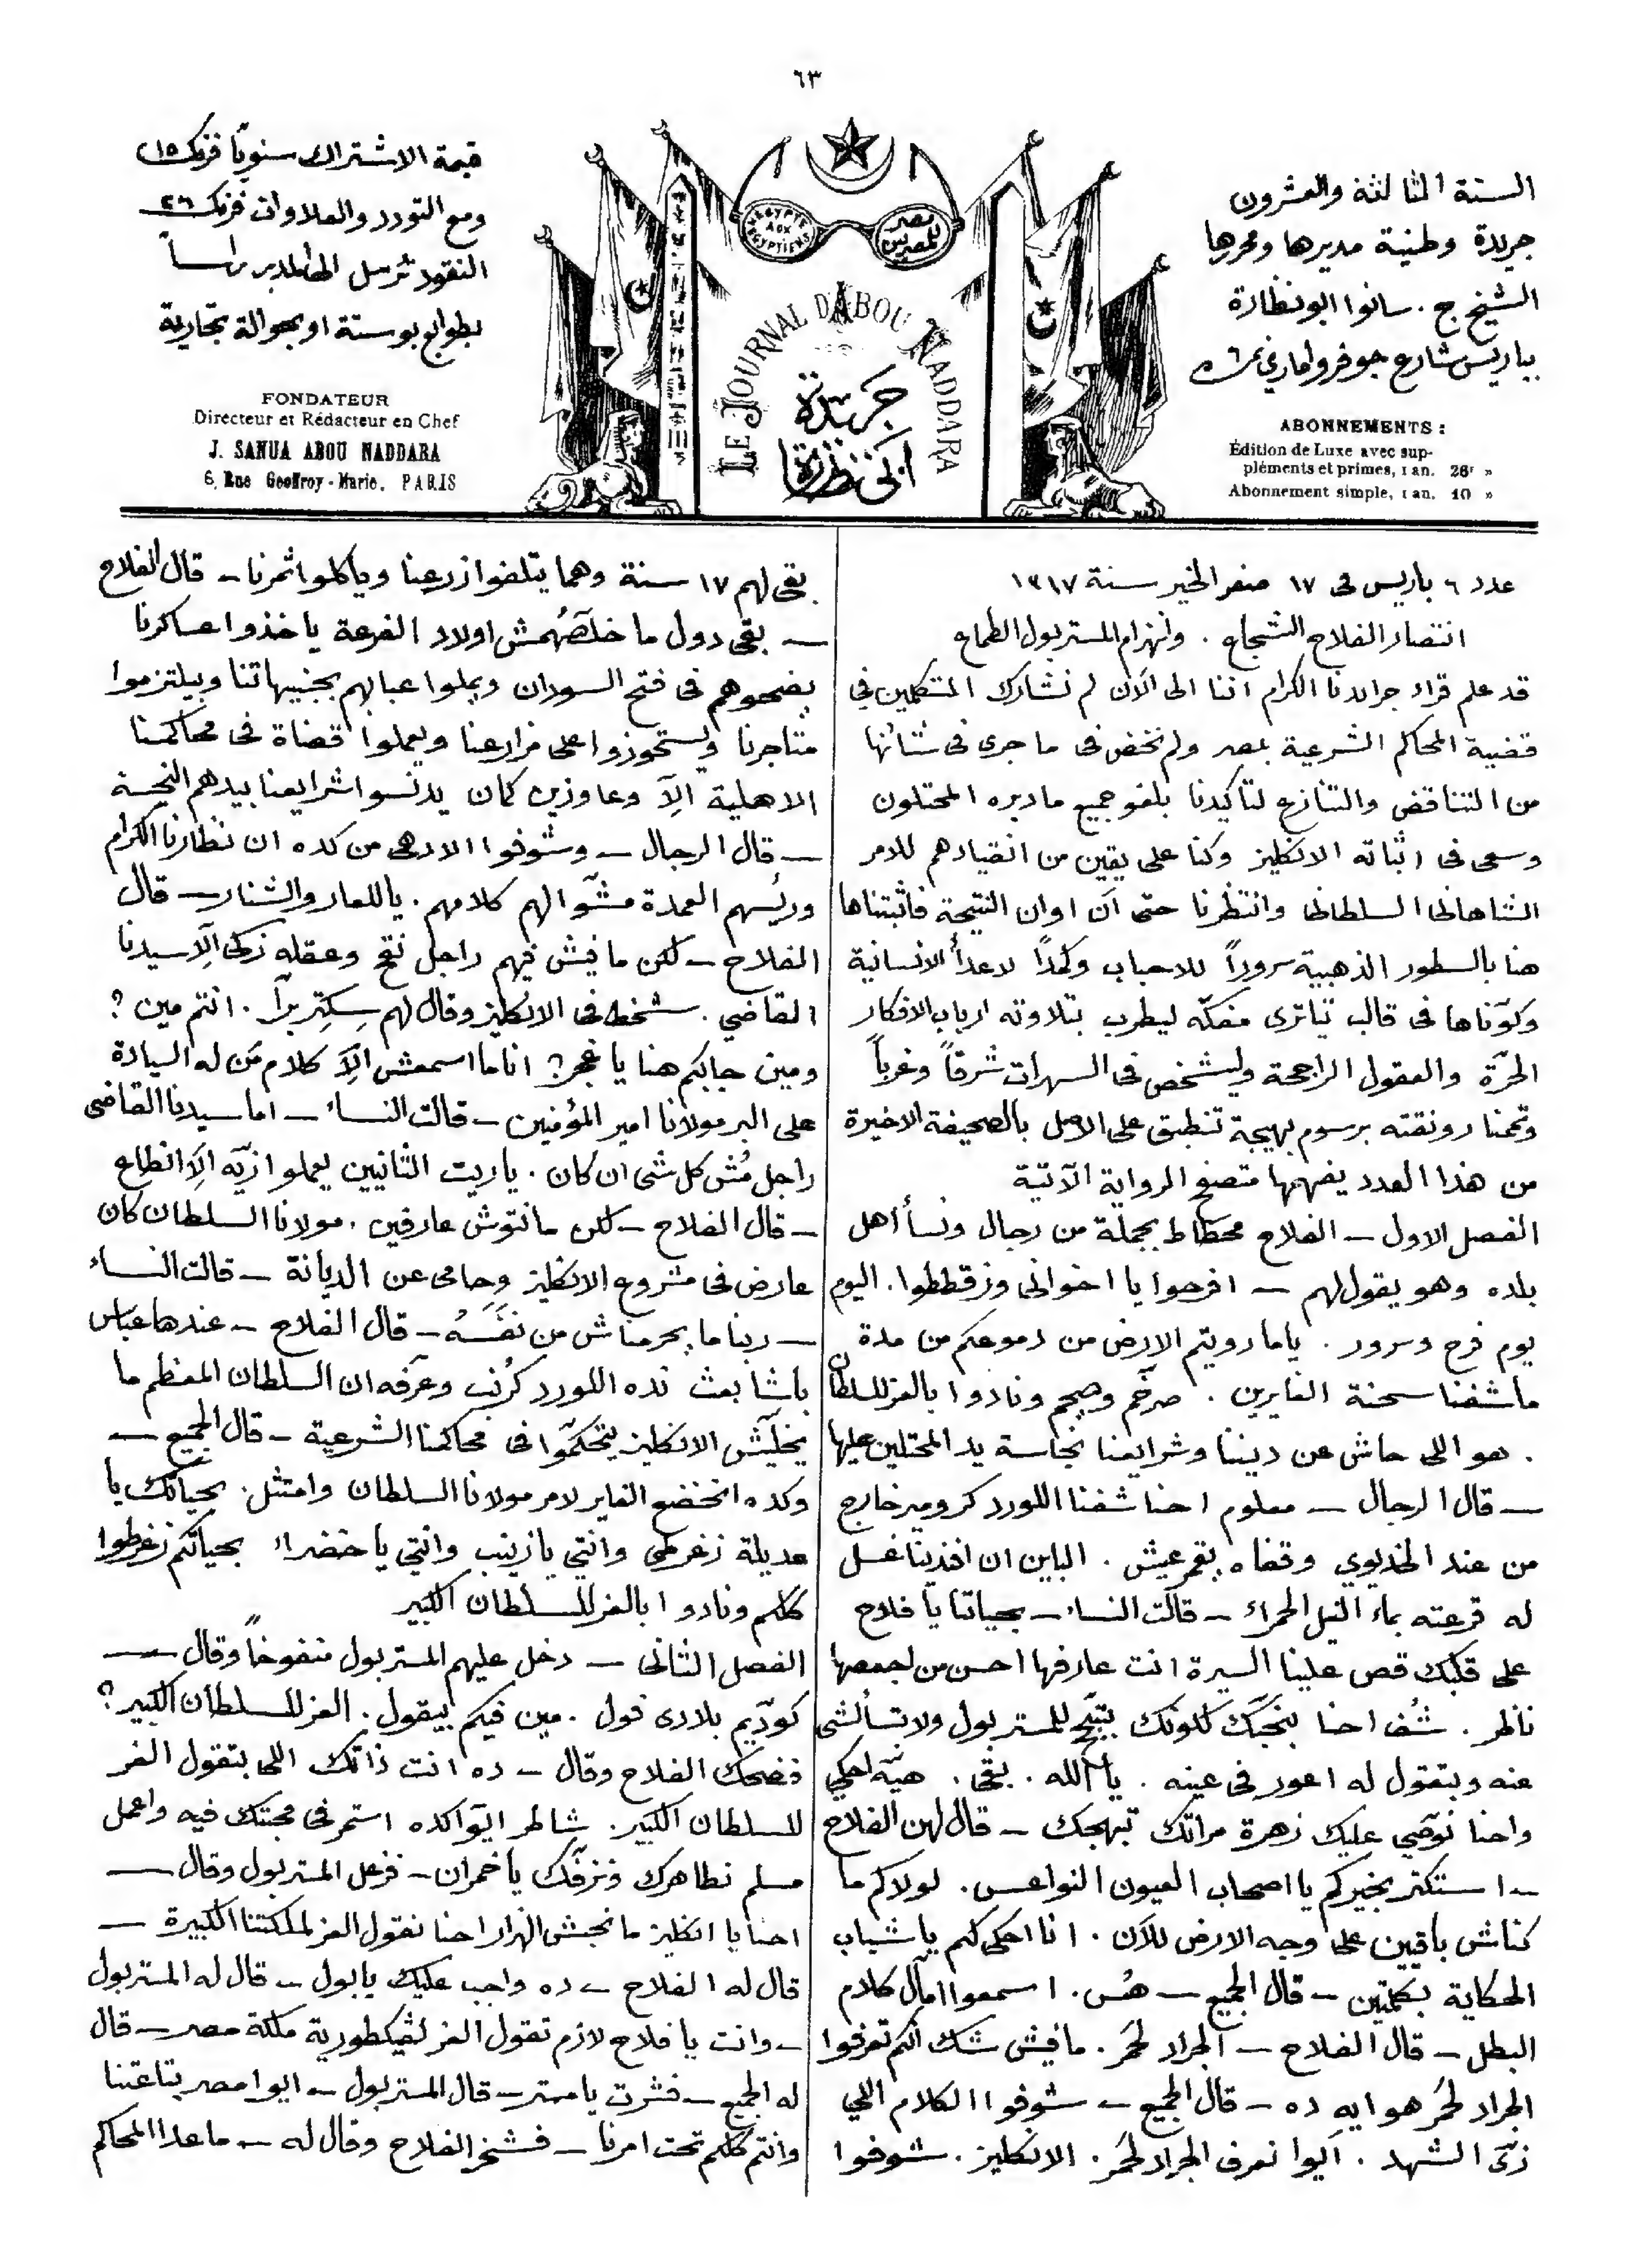 ٦٣
السنة الثالثة والعشرون
جريدة وطنية مديرها ومحررها
الشيخ ج. سانوا ابو نظارة
بباريس شارع جوفروا ماري نمر ٦
ABONNEMENTS :
Édition de Luxe avec sup-
pléments et primes, 1 an. 26f »
Abonnement simple, 1 an. 10 »
L'EGYPTE AUX EGYPTIENS
مصر للمصريين
LE JOURNAL D'ABOU NADDARA
جريدة
ابي نظارة
قيمة الاشتراك سنويًا فرنك ١٥
ومع التودد والعلاوات فرنك ٢٦
النقود ترسل الى المدير راسًا
بطوابع بوستة او بحوالة تجارية
FONDATEUR
Directeur et Rédacteur en Chef
J. SANUA ABOU NADDARA
6, Rue Geoffroy-Marie, PARIS
عدد ٦ باريس فى ١٧ صفر الخير سنة ١٣١٧
انتصار الفلاح الشجاع . وانهزام المستر بول الطماع
قد علم قراء جرايدنا الكرام اننا الى الآن لم نشارك المتكلمين فى
قضية المحاكم الشرعية بمصر ولم نخض فى ما جرى فى شأنها
من التناقض والتنازع لتأكيدنا بلغو جميع ما دبره المحتلون
وسعى فى اثباته الانكليز وكنا على يقين من انقيادهم للامر
الشاهانى السلطانى وانتظرنا حتى آن اوان النتيجة فأثبتناها
هنا بالسطور الذهبية سرورًا للاحباب وكمدًا لاعدأ الانسانية
وكوّناها فى قالب تياترى مفكّه ليطرب بتلاوته ارباب الافكار
الحرّة والعقول الراجحة وليشخص فى السهرات شرقًا وغربًا
وتممنا رونقته برسوم بهيجة تنطبق على الاصل بالصحيفة الاخيرة
من هذا العدد يفهمها متصفح الرواية الآتية
الفصل الاول ـ الفلاح محطاط بجملة من رجال ونسأ أهل
بلده وهو يقول لهم ـ افرحوا يا اخوانى وزقططوا. اليوم
يوم فرح وسرور . ياما رويتم الارض من دموعكم من مدة
ما شفنا سحنة الغايرين . صرخم وصيحم ونادوا بالعز للسلطان
. هو اللى حاش عن ديننا وشرايعنا نجاسة يد المحتلين عليها
ـ قال الرجال ـ معلوم احنا شفنا اللورد كرومير خارج
من عند الخديوي وقفاه يقمر عيش . الباين ان افندينا غسل
له قرعته بماء النيل الحمراء ـ قالت النساء ـ بحياتنا يا فلاح
على قلبك قص علينا السيرة انت عارفها احسن من اجمعها
ناظر . شُف احنا بنحبّك لكونك للمستر بول ولا تسألشى
عنه وبتقول له اعور فى عينه . يا الله . بقى . هيّه احكي
واحنا نوصّي عليك زهرة مراتك تبهجك ـ قال لهن الفلاح
ـ استكتر بخيركم يا اصحاب العيون النواعس. لولاكم ما
كناش باقيين على وجه الارض للآن . انا احكى لكم يا شباب
الحكاية بكلمتين ـ قال الجميع ـ هُس. اسمعوا امال كلام
البطل ـ قال الفلاح ـ الجراد لحمَر . مافيش شك انكم تعرفوا
الجراد لحمَر هو ايه ده ـ قال الجميع ـ شوفوا الكلام اللي
زىّ الشهد . ايوا نعرف الجراد لحمَر . الانكليز . شوفوا
بقى لهم ١٧ سنة وهما يتلفوا زرعنا وياكلوا ثمرنا ـ قال الفلاح
ـ بقى دول ما خلصهُمش اولاد الفرعة ياخذوا عساكرنا
يضحوهم فى فتح السودان ويملوا عبابهم بجنيهاتنا ويبلتزموا
متاجرنا ويستحوزوا على مزارعنا ويعملوا قضاة فى محاكمنا
الاهلية الّا وعاوزين كمان يدنسوا شرايعنا بيدهم النجسة
ـ قال الرجال ـ وشوفوا الادهى من كده ان نظارنا الكرام
ورئيسهم العمدة مشّوا لهم كلامهم . يا للعار والشنار ـ قال
الفلاح ـ لكن مافيش فيهم راجل نقح وعقله زكى الّا سيدنا
القاضي . شخط فى الانكليز وقال لهم سِكتِر برّا . انتم مين ؟
ومين جابكم هنا يا غجر ؟ انا ما اسمعش الّا كلام مَن له السيادة
على البر مولانا امير المؤمنين ـ قالت النساء ـ اما سيدنا القاضى
راجل مُش كل شى ان كان . ياريت التانيين يعملوا زيّه الّا انطاع
ـ قال الفلاح ـ لكن مانتوش عارفين . مولانا السلطان كان
عارض فى مشروع الانكليز وحامى عن الديانة ـ قالت النساء
ـ ربنا ما يحرمناش من نفَسَهُ ـ قال الفلاح ـ عندها عباس
باشا بعث نده اللورد كرُنب وعرّفه ان السلطان المعظم ما
يخليّش الانكليز يتحكموا فى محاكمنا الشرعية ـ قال الجميع ـ
وكده انخضع الغاير لامر مولانا السلطان وامتثل . بحياتك يا
عديلة زغرطى وانتي يا زينب وانتي يا خضراء بحياتكم زغرطوا
كلكم ونادوا بالعز للسلطان الكبير
الفصل الثانى ـ دخل عليهم المستر بول منفوخًا وقال ـ
كودّيم بلادى فول . مين فيكم بيقول . العز للسلطان الكبير ؟
فضحك الفلاح وقال ـ ده انت ذاتك اللى بتقول العز
للسلطان الكبير . شاطر ايّوا كده استمر فى محبتك فيه واعمل
مسلم نطاهرك ونزفّك يا خمران ـ فزعل المستر بول وقال ـ
احنا يا انكليز ما نحبش الهزار احنا نقول العز لملكتنا الكبيرة ـ
قال له الفلاح ـ ده واجب عليك يا بول ـ قال له المستر بول
ـ وانت يا فلاح لازم تقول العز لفيكطورية ملكة مصر ـ قال
له الجميع ـ فشرت يا مستر ـ قال المستر بول ـ ايوا مصر بتاعتنا
وانتم كلكم تحت امرنا ـ فشخر الفلاح وقال له ـ ما عدا المحاكم